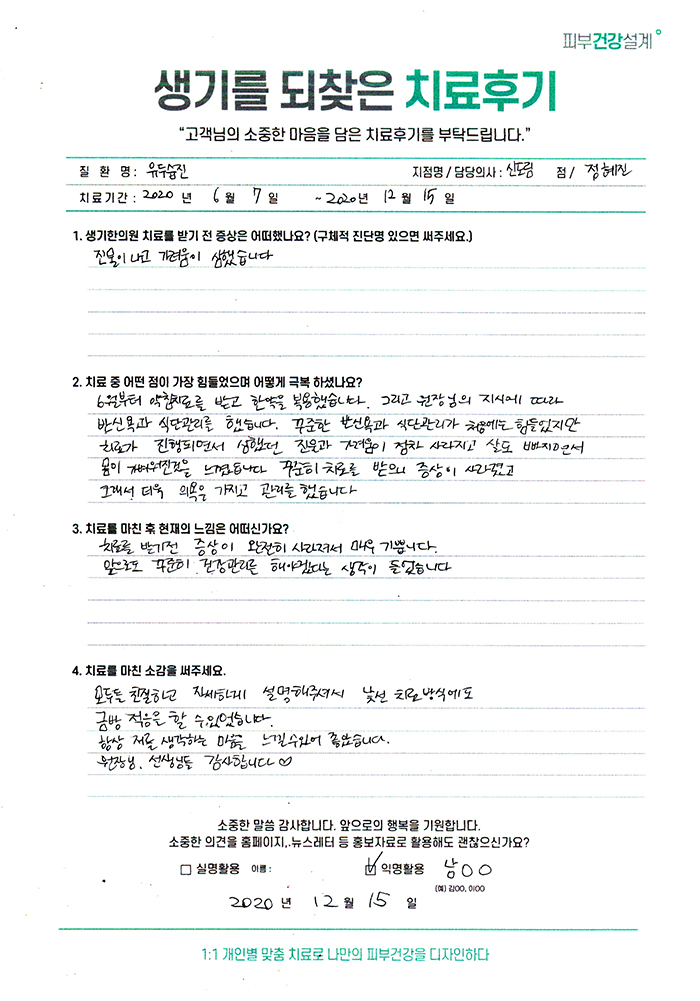 피부건강설계
생기를 되찾은 치료후기
“고객님의 소중한 마음을 담은 치료후기를 부탁드립니다.”
질 환 명 : 유두습진 지점명 / 담당의사 : 신도림 점 / 정혜진
치료기간 : 2020 년 6 월 7 일 ~ 2020년 12 월 15 일
1. 생기한의원 치료를 받기 전 증상은 어떠했나요? (구체적 진단명 있으면 써주세요.)
진물이 나고 가려움이 심했습니다
2. 치료 중 어떤 점이 가장 힘들었으며 어떻게 극복 하셨나요?
6월부터 약침치료를 받고 한약을 복용했습니다. 그리고 원장님의 지시에 따라
반신욕과 식단관리를 했습니다. 꾸준한 반신욕과 식단관리가 처음에는 힘들었지만
치료가 진행되면서 심했던 진물과 가려움이 점차 사라지고 살도 빠지면서
몸이 가벼워진것을 느꼈습니다 꾸준히 치료를 받으니 증상이 사라졌고
그래서 더욱 의욕을 가지고 관리를 했습니다
3. 치료를 마친 후 현재의 느낌은 어떠신가요?
치료를 받기전 증상이 완전히 사라져서 매우 기쁩니다.
앞으로도 꾸준히 건강관리를 해야겠다는 생각이 들었습니다
4. 치료를 마친 소감을 써주세요.
모두들 친절하고 자세하게 설명해주셔서 낯선 치료방식에도
금방 적응을 할 수 있었습니다.
항상 저를 생각하는 마음을 느낄수있어 좋았습니다.
원장님, 선생님들 감사합니다 ♡
소중한 말씀 감사합니다. 앞으로의 행복을 기원합니다.
소중한 의견을 홈페이지,.뉴스레터 등 홍보자료로 활용해도 괜찮으신가요?
□ 실명활용 이름 : ☑ 익명활용 남OO
(예) 김OO, 이OO
2020 년 12 월 15 일
1:1 개인별 맞춤 치료로 나만의 피부건강을 디자인하다